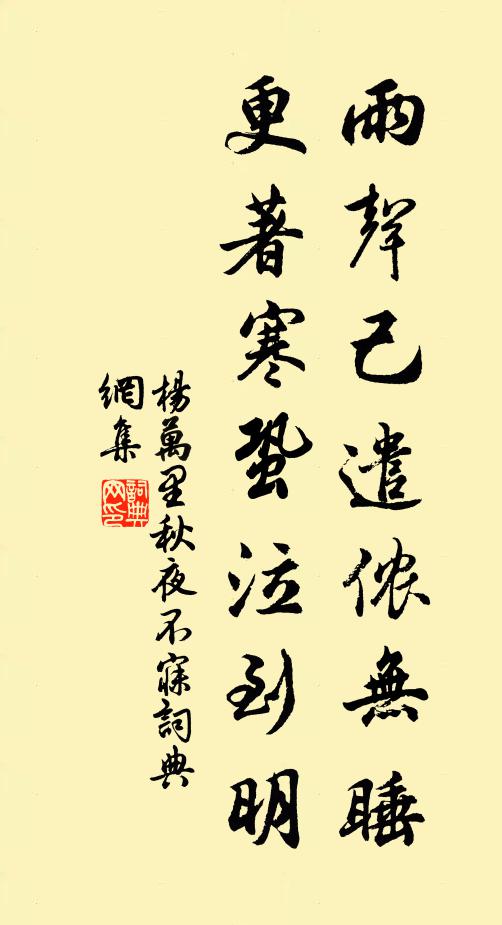 雨聲已遣侬無睡
更著寒蛩泣到明
楊萬里秋夜不寐詞典
網集
詞典
网印